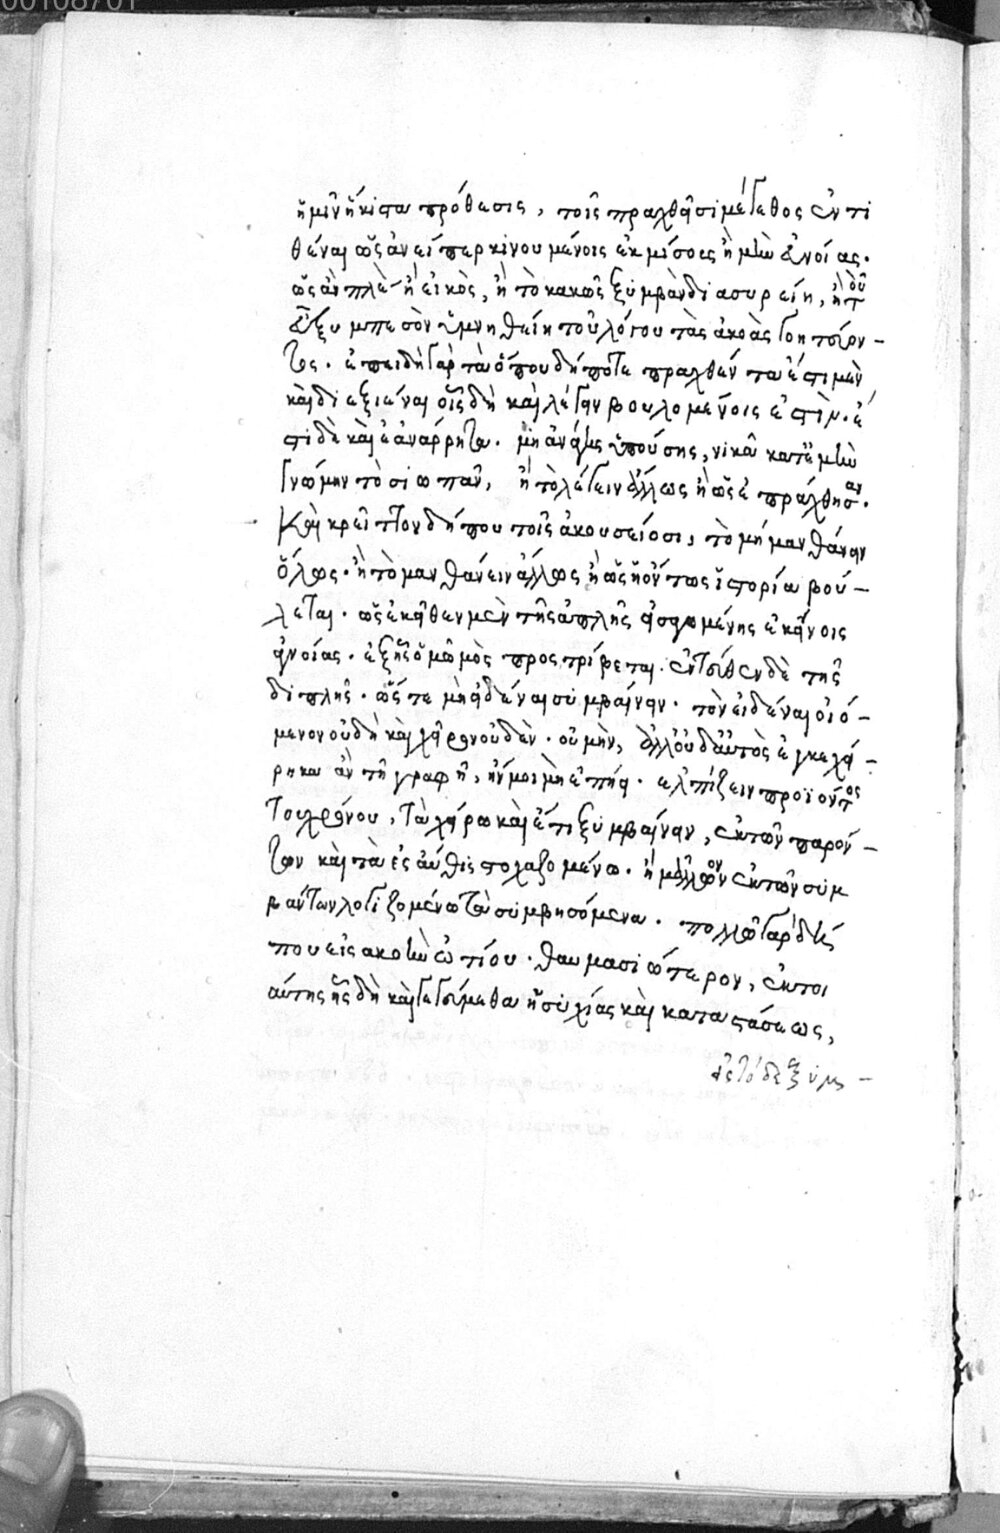 00108701
ἡμῖν ἥκιστα πρόθεσις, τοῖς πραχθεῖσι μέγεθος ἐντι
θέναι ὡς ἂν εἴπερ κινουμένοις ἐκ μίσους ἢ μὴν εὐνοίας.
ὡς ἂν ἢ εἰκὸς, ἢ τὸ κακῶς ξυμβὰν διασυρείη, ἢ τ
εὖ ξυμπεσὸν ὑμνηθείη τοῦ λόγου τὰς ἀκοὰς γοητεύον-
τος. ἐπειδὴ γὰρ τὰ ὅπου δήποτε πραχθέντα ἔστι μὲν
καὶ διεξιέναι οἷς δὴ καὶ λέγειν βουλομένοις ἐστὶν. ἔ
στι δὲ καὶ ἐᾶν ἄρρητα. μὴ ἀνάγκης ἐπούσης, νικᾶ κατ' ἐμὴν
γνώμην τὸ σιωπᾶν, ἢ τὸ λέγειν ἄλλως ἢ ὡς ἐπράχθησαν.
Καὶ κρεῖττον δήπου τοῖς ἀκουσείοσι, τὸ μὴ μανθάνειν
ὅλως. ἢ τὸ μανθάνειν ἄλλως ἢ ὡς ἡ ὄντως ἱστορία βού-
λεται. ὡς ἐκεῖθεν μὲν τῆς ἁπλῆς ἐκείνοις
ἀγνοίας. ἐξ ἧς ὁ μῶμος προστρίβεται. ἐντεῦθεν δὲ τῆς
διπλῆς. ὥστε μὴ εἰδέναι συμβαίνειν. τὸν εἰδέναι οἰό-
μενον οὐδὴ καὶ χεῖρον οὐδὲν. οὐ μὴν, ἀλλ' οὐδ' αὐτὸς ἐγκεχεί-
ρηκα ἂν τῇ γραφῇ, ἤν μοι μὴ ἐπῄει. ἐλπίζειν προϊόντος
τοῦ χρόνου, τὰ χείρω καὶ ἔτι ξυμβαίνειν, ἐκ τῶν παρόν-
των καὶ τὰ ἐς αὖθις στοχαζομένω. ἢ μᾶλλον ἐκ τῶν συμ
βάντων λογιζομένω τὰ συμβησόμενα. πολλῶ γὰρ
που εἰς ἀκοὴν ὠτίου. θαυμασιώτερον, ἐκ τοι
αύτης ἧς δὴ καὶ γεγεύμεθα ἡσυχίας καὶ καταστάσεως,
ἐς τόδε ξυμ-